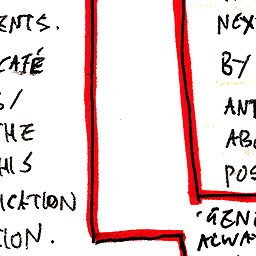 ENTS.
CAFÉ
S/
THE
HIS
ICATION
TION.
NEX
BY
ANT
ABO
POS
'GEN
ALWA